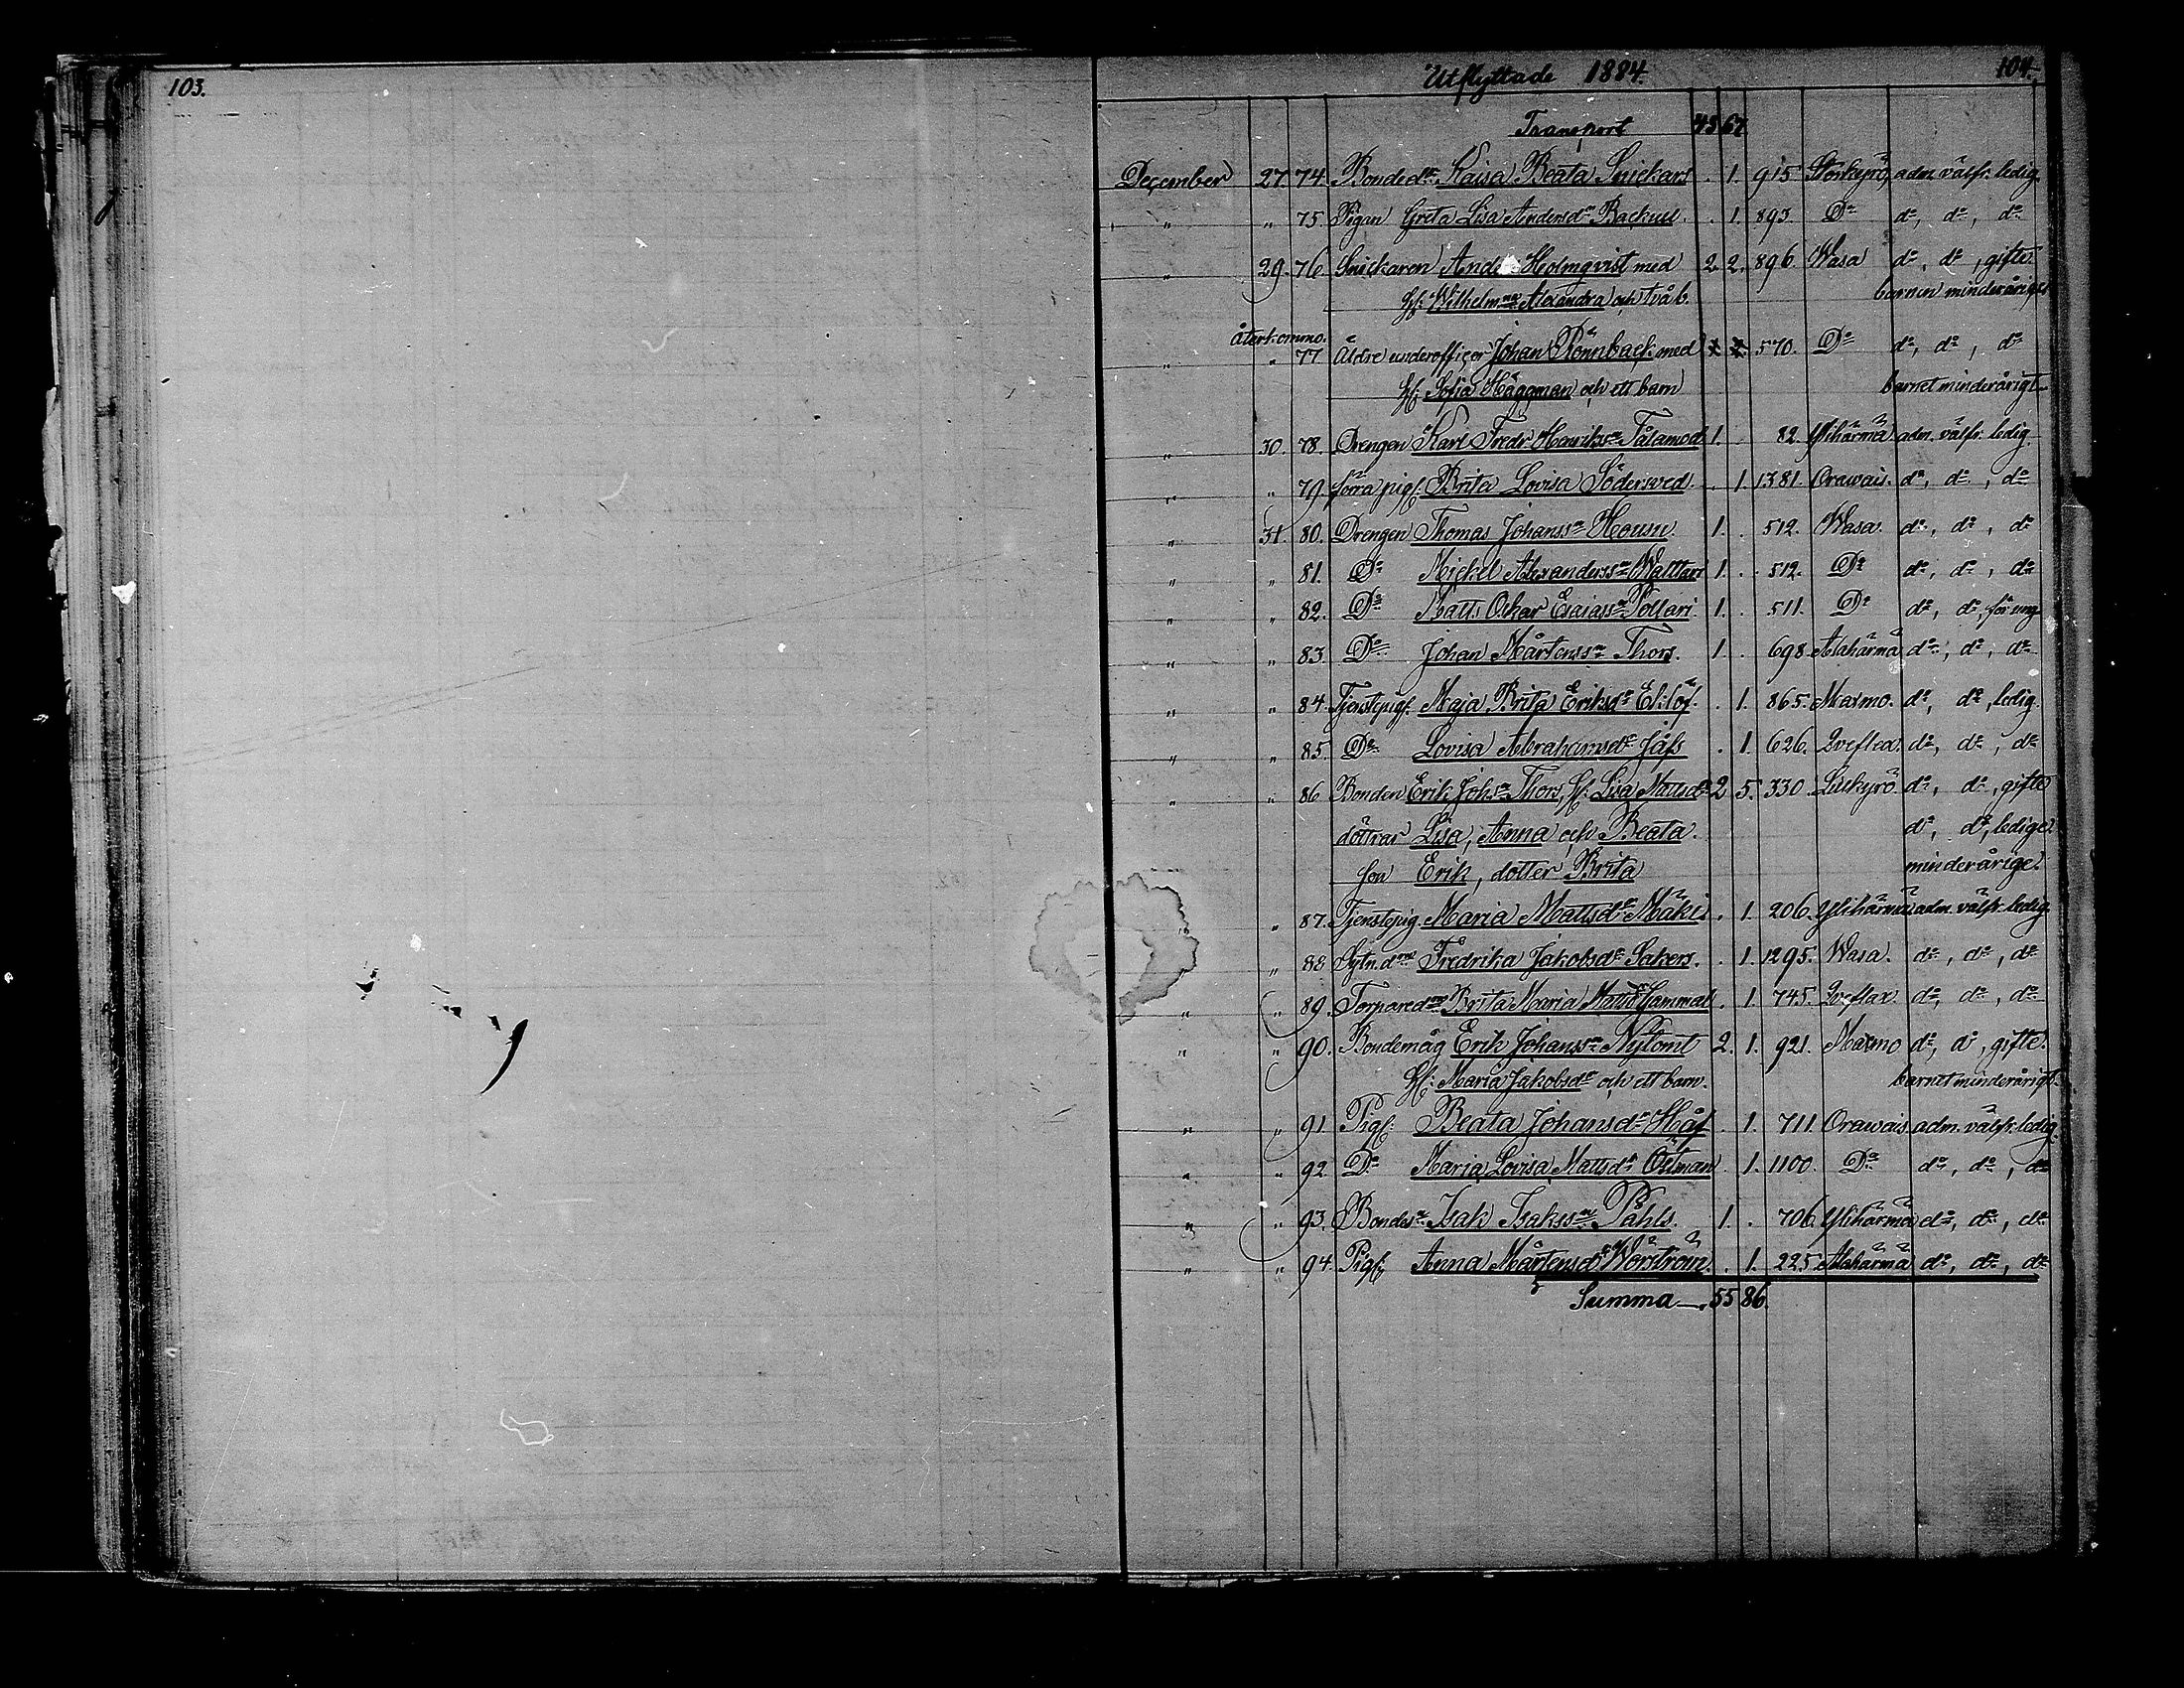 103.
Utflyttade 1884. 104.
Transport 43 67
December 27. 74. Bonded:r Kaisa Beata Snickars . 1. 915. Storkyrö, adm. välfr. ledig.
" " 75. Pigan Greta Lisa Andersd:r Backull . 1. 893. D:o d:o, d:o, d:o
" 29. 76. Snickaren Anders Holmqvist med 2. 2. 896. Wasa d:o, d:o, gifte.
H: Wilhelmina Alexandra och två b. barnen minderåriga
återkommo.
" " 77. äldre underofficer Johan Rönnback med 570. D:o d:o, d:o, d:o
H: Sofia Häggman och ett barn barnet minderårigt
" 30. 78. Drengen Karl Fredr Henrikss:n Tålamod 1. . 82. Ylihärmä adm. välfr. ledig
" " 79. förra pig: Brita Lovisa Södersved . 1. 1381. Orawais. d:o, d:o, d:o
" 31. 80. Drengen Thomas Johanss:n 1. . 512. Wasa. d:o, d:o, d:o
" " 81. D:o Mickel Alexanderss:n Wattari 1. . 512. D:o d:o, d:o, d:o
" " 82. D:o Matts Oskar Esaiass:n Pollari 1. . 511. D:o d:o, d:o, för ung
" " 83. D:o Johan Mårtenss:n Thors. 1. . 698. Alahärmä d:o, d:o, d:o
" " 84. Tjenstepig: Maja Brita Eriksd:r Elilöf. . 1. 865. Maxmo. d:o, d:o, ledig.
" " 85. D:o Lovisa Abrahamsd:r Jåfs . 1. 626. Qveflax. d:o, d:o, d:o
" " 86 Bonden Erik Johss:n Thors, H: Lisa Mattsd:r 2 5. 330. Lillkyrö d:o, d:o, gifte
döttrar Lisa, Anna och Beata. d:o, d:o, ledige.
son Erik, dotter Brita minderårige.
" " 87. Tjenstepig Maria Mattsd:r Mäki . 1. 206. Ylihärmä adm. välfr. ledig
" " 88 Sytn.d:r Fredrika Jakobsd:r Sakers. . 1. 1295. Wasa. d:o, d:o, d:o
" " 89. Torpared:r Brita Maria Mattsd:r Gammal . 1. 745. Qveflax. d:o, d:o, d:o
" " 90. Bondemåg Erik Johanss:n Nytomt 2. 1. 921. Maxmo d:o, d:o, gifte.
H: Maria Jakobsd:r och ett barn. barnet minderårigt.
" " 91 Pig: Beata Johansd:r Håf . 1. 711. Orawais. adm. välfr. ledig
" " 92. D:o Maria Lovisa Mattsd:r Östman . 1. 1100. D:o d:o, d:o, d:o
" " 93. Bondes:n Isak Isakss:n Påhls. 1. . 706. Ylihärmä d:o, d:o, d:o
" " 94. Pig: Anna Mårtensd:r Wörström. . 1. 225. Alahärmä d:o, d:o, d:o
Summa 55 86.